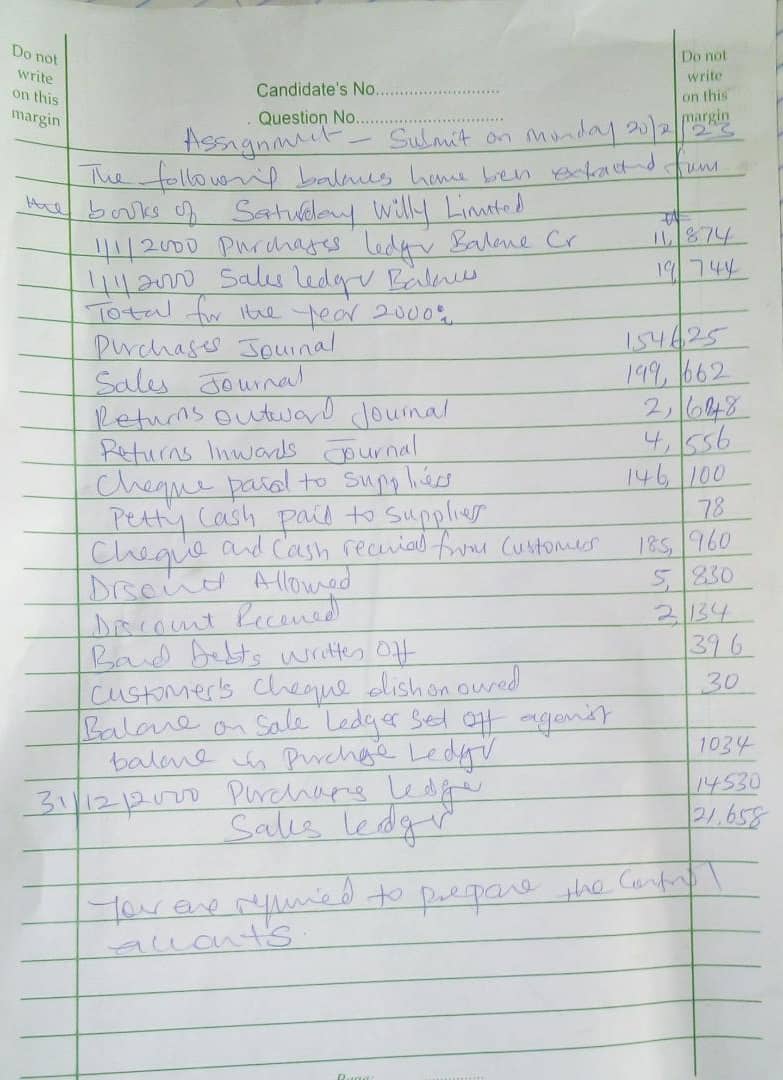 Do not
write
on this
margin
Do not
write
on this
margin
Candidate's No..........................
Question No...............................
Assignment - Submit on Monday 20/2/23
The following balances have been extracted from
the books of Saturday Willy Limited
1/1/2000 Purchases ledger Balance Cr 11,874
1/1/2000 Sales ledger Balances 19,744
Total for the year 2000:
Purchases Journal 154625
Sales Journal 199,662
Returns outward Journal 2,648
Returns Inwards Journal 4,556
Cheque paid to suppliers 146,100
Petty Cash paid to suppliers 78
Cheque and Cash received from Customers 185,960
Discount Allowed 5,830
Discount Received 2,134
Bad Debts written off 396
Customer's cheque dishonoured 30
Balance on Sale Ledger set off against
balance in Purchase Ledger 1034
31/12/2000 Purchases ledger 14530
Sales ledger 21,658
You are required to prepare the Control
accounts.